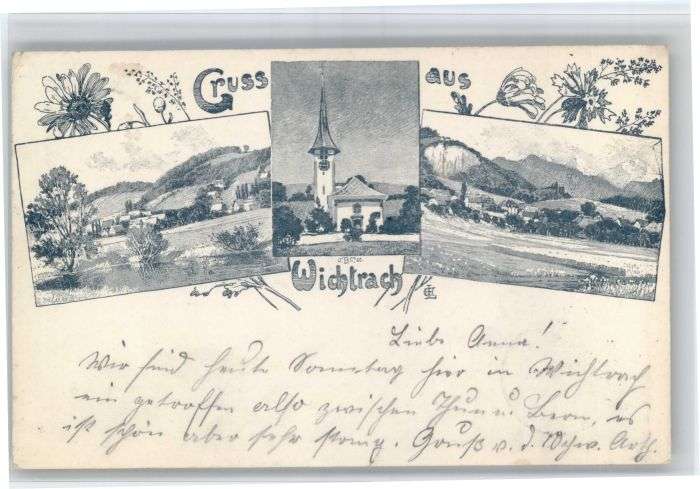 Gruss aus
Wichtrach
Liebe Anna!
Wir sind heute Sonntag hier in Wichtrach
ein getroffen also zwischen Thun u. Bern, es
ist schön aber sehr. Gruß v. d.